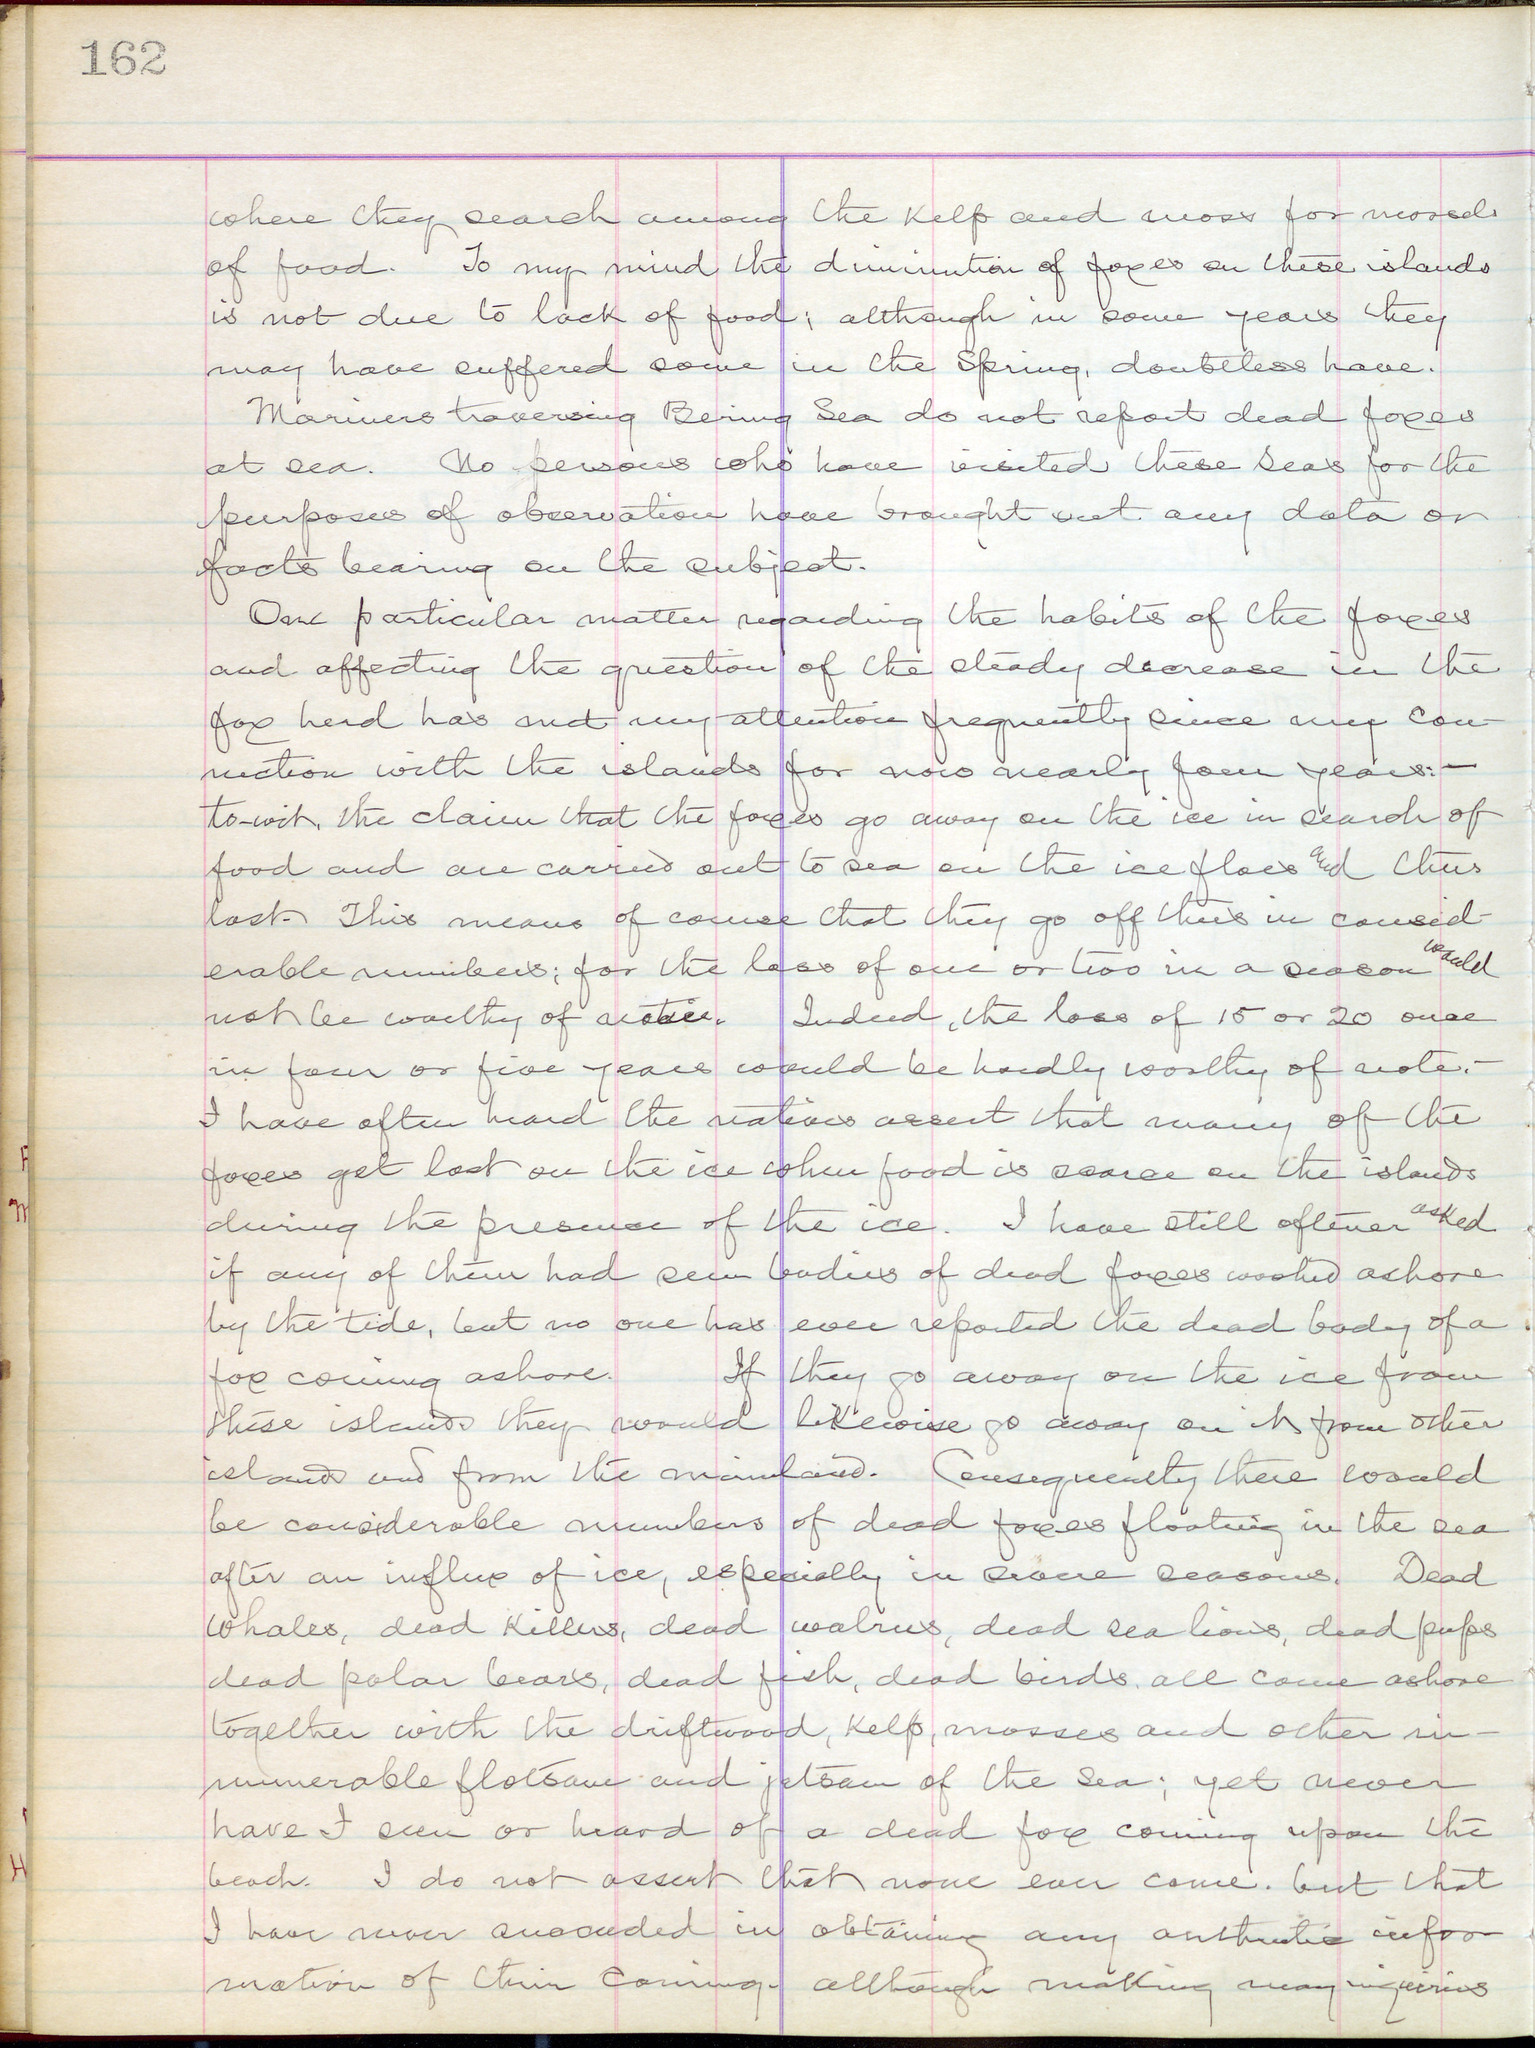 162
where they search among the kelp and moss for morsels
of food. To my mind the diminution of foxes on these islands
is not due to lack of food; although in some years they
may have suffered some in the Spring, doubtless have.
Mariners traversing Bering Sea do not report dead foxes
at sea. No persons who have visited these Seas for the
purposes of observation have brought out any data or
facts bearing on the subject.
One particular matter regarding the habits of the foxes
and affecting the question of the steady decrease in the
fox herd has met my attention frequently since my con-
nection with the islands for now nearly four years:-
to-wit, the claim that the foxes go away on the ice in search of
food and are carried out to sea on the ice floes and thus
lost. This means of course that they go off thus in consid-
erable numbers; for the loss of one or two in a season would
not be worthy of notice. Indeed, the loss of 15 or 20 once
in four or five years would be hardly worthy of note.-
I have often heard the natives assert that many of the
foxes get lost on the ice when food is scarce on the islands
during the presence of the ice. I have still oftener asked
if any of them had seen bodies of dead foxes washed ashore
by the tide, but no one has ever reported the dead body of a
fox coming ashore. If they go away on the ice from
these islands they would likewise go away on it from other
islands and from the mainland. Consequently there would
be considerable numbers of dead foxes floating in the sea
after an influx of ice, especially in severe seasons. Dead
whales, dead killers, dead walrus, dead sea lions, dead pups
dead polar bears, dead fish, dead birds, all come ashore
together with the driftwood, kelp, mosses and other in-
numerable flotsam and jetsam of the sea; yet never
have I seen or heard of a dead fox coming upon the
beach. I do not assert that none ever come, but that
I have never succeeded in obtaining any authentic infor-
mation of their coming, although making many inquiries